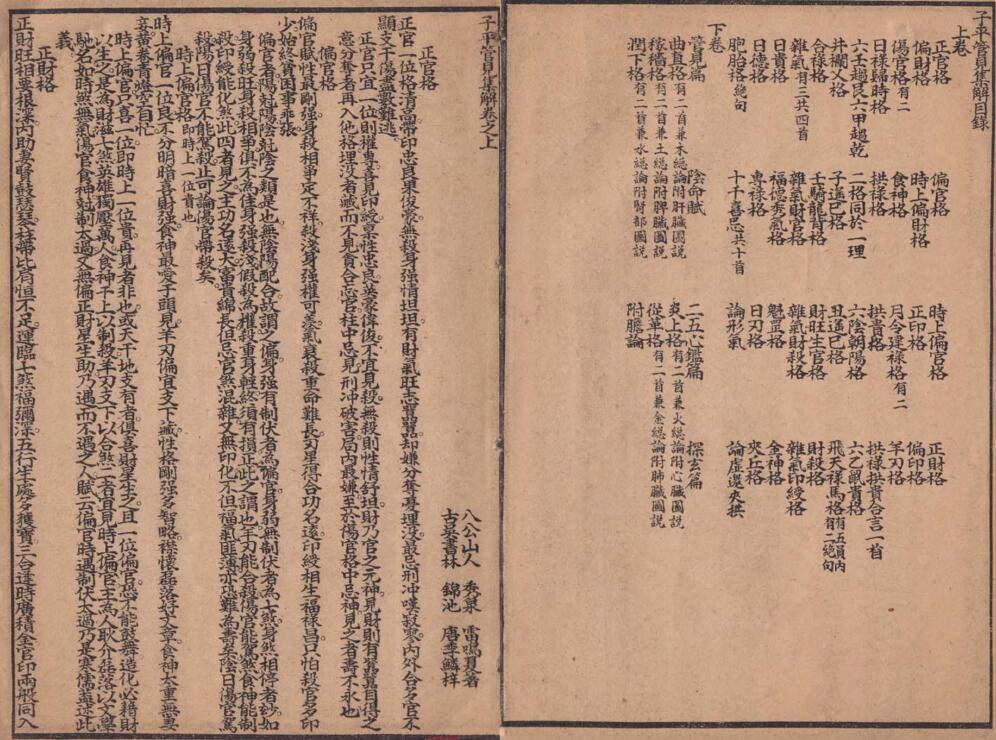 子平管見集解目錄
上卷
正官格 偏官格 時上偏官格 正財格
偏財格 時上偏財格 正印格 偏印格
傷官格有二 食神格 月令建祿格有二 羊刃格
日祿歸時格 拱祿格 拱貴格 拱祿拱貴合言一首
六壬趨艮六甲趨乾 二格同於一理 六陰朝陽格 六乙鼠貴格
井襴叉格 子遥巳格 丑遥巳格 飛天祿馬格有五員內有二絕句
合祿格 壬騎龍背格 財旺生官格 財殺格
雜氣有三共四首 雜氣財官格 雜氣財殺格 雜氣印綬格
日貴格 福德秀氣格 魁罡格 金神格
日德格 專祿格 日刃格 夾丘格
胞胎格絕句 十干喜忌共十首 論形氣 論虛邀夾拱
下卷
管見篇 陰命賦 二五心鑑篇 探玄篇
曲直格有二首兼木總論附肝臟圖說 炎上格有二首兼火總論附心臟圖說
稼穡格有二首兼土總論附脾臟圖說 從革格有二首兼金總論附肺臟圖說
潤下格有二首兼水總論附腎部圖說 附膽論
子平管見集解卷之上
八公山人 秀泉 雷鳴夏著
古吳書林 錦池 唐季鱗梓
正官格
正官一位格清高帶印忠良秉俊豪無殺身強情坦坦有財氣旺志囂囂却嫌分奪憂埋沒最忌刑冲嘆寂寥內外合多官不
顯支干傷盡數難逃
正官只宜一位則權專喜見印綬稟性忠良英豪俊偉不宜見殺無殺則性情舒坦財乃官之元神見財則有囂囂自得之
意分奪者再入他格埋沒者藏而不見貪合忘官柱中忌見刑冲破害局內最嫌至於傷官格中忌神見之者壽不永也
偏官格
偏官賦性最剛強身殺相爭定不祥殺淺身強權可羨氣衰殺重命難長刃星得合功名遂印綬相生福祿昌只怕殺官多印
少始終貧困事乖張
偏官者陽尅陽陰尅陰之類是也無陰陽配合故謂之偏身強有制伏者為偏官身弱無制伏者為七煞身煞相停者妙如
身弱殺旺身殺相爭俱不為佳身強殺淺假殺為權殺重身輕終須有損正此之謂也羊刃能合殺傷官能駕煞食神能制
殺印綬能化煞此四者見之主功名遂大富貴綿長但忌官煞混雜又無印化不但福氣匪薄亦恐難為壽矣陰日傷官駕
殺陽日傷官不能駕殺止可論傷官帶殺矣
時上偏官格即時上一位貴也
時上偏官一位良不分明暗喜財強食神最愛干頭見羊刃偏宜支下藏性格剛強多智略襟懷磊落好文章食神太重無妻
喜黃卷青燈空自忙
時上偏官只喜一位即時上一位貴再見者非也或天干地支有者俱喜財星生之且一位偏官恐不能鼓舞造化必藉財
以生之是為財滋七煞英雄獨壓萬人食神干上以制殺羊刃支下以合煞二者宜見時上偏官主為人耿介磊落以文學
馳名如時煞無氣傷官食神尅制太過又無偏正財星生助乃遇而不遇之人賦云偏官時遇制伏太過乃是寒儒盖述此
義
正財格
正財旺相要根深內助妻賢鼓瑟琴柱帶比肩恒不足運臨七煞福彌深五行生處多獲寶三合逢時廣積金官印兩般同入